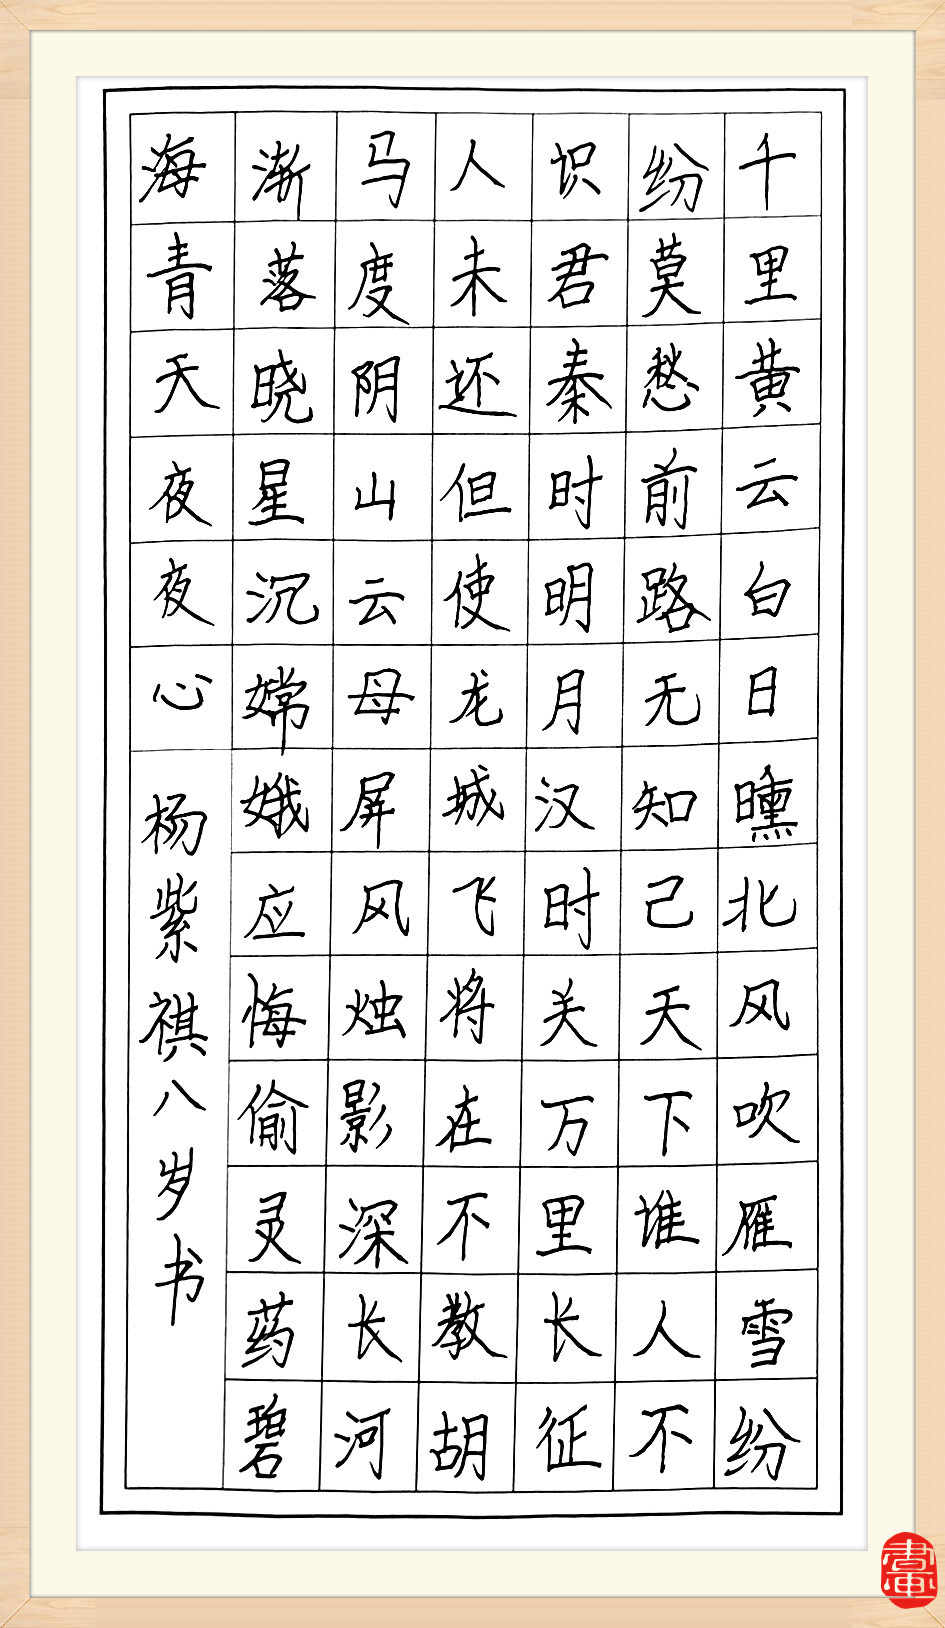 千里黄云白日曛北风吹雁雪纷
纷莫愁前路无知己天下谁人不
识君秦时明月汉时关万里长征
人未还但使龙城飞将在不教胡
马度阴山云母屏风烛影深长河
渐落晓星沉嫦娥应悔偷灵药碧
海青天夜夜心
杨紫祺八岁书